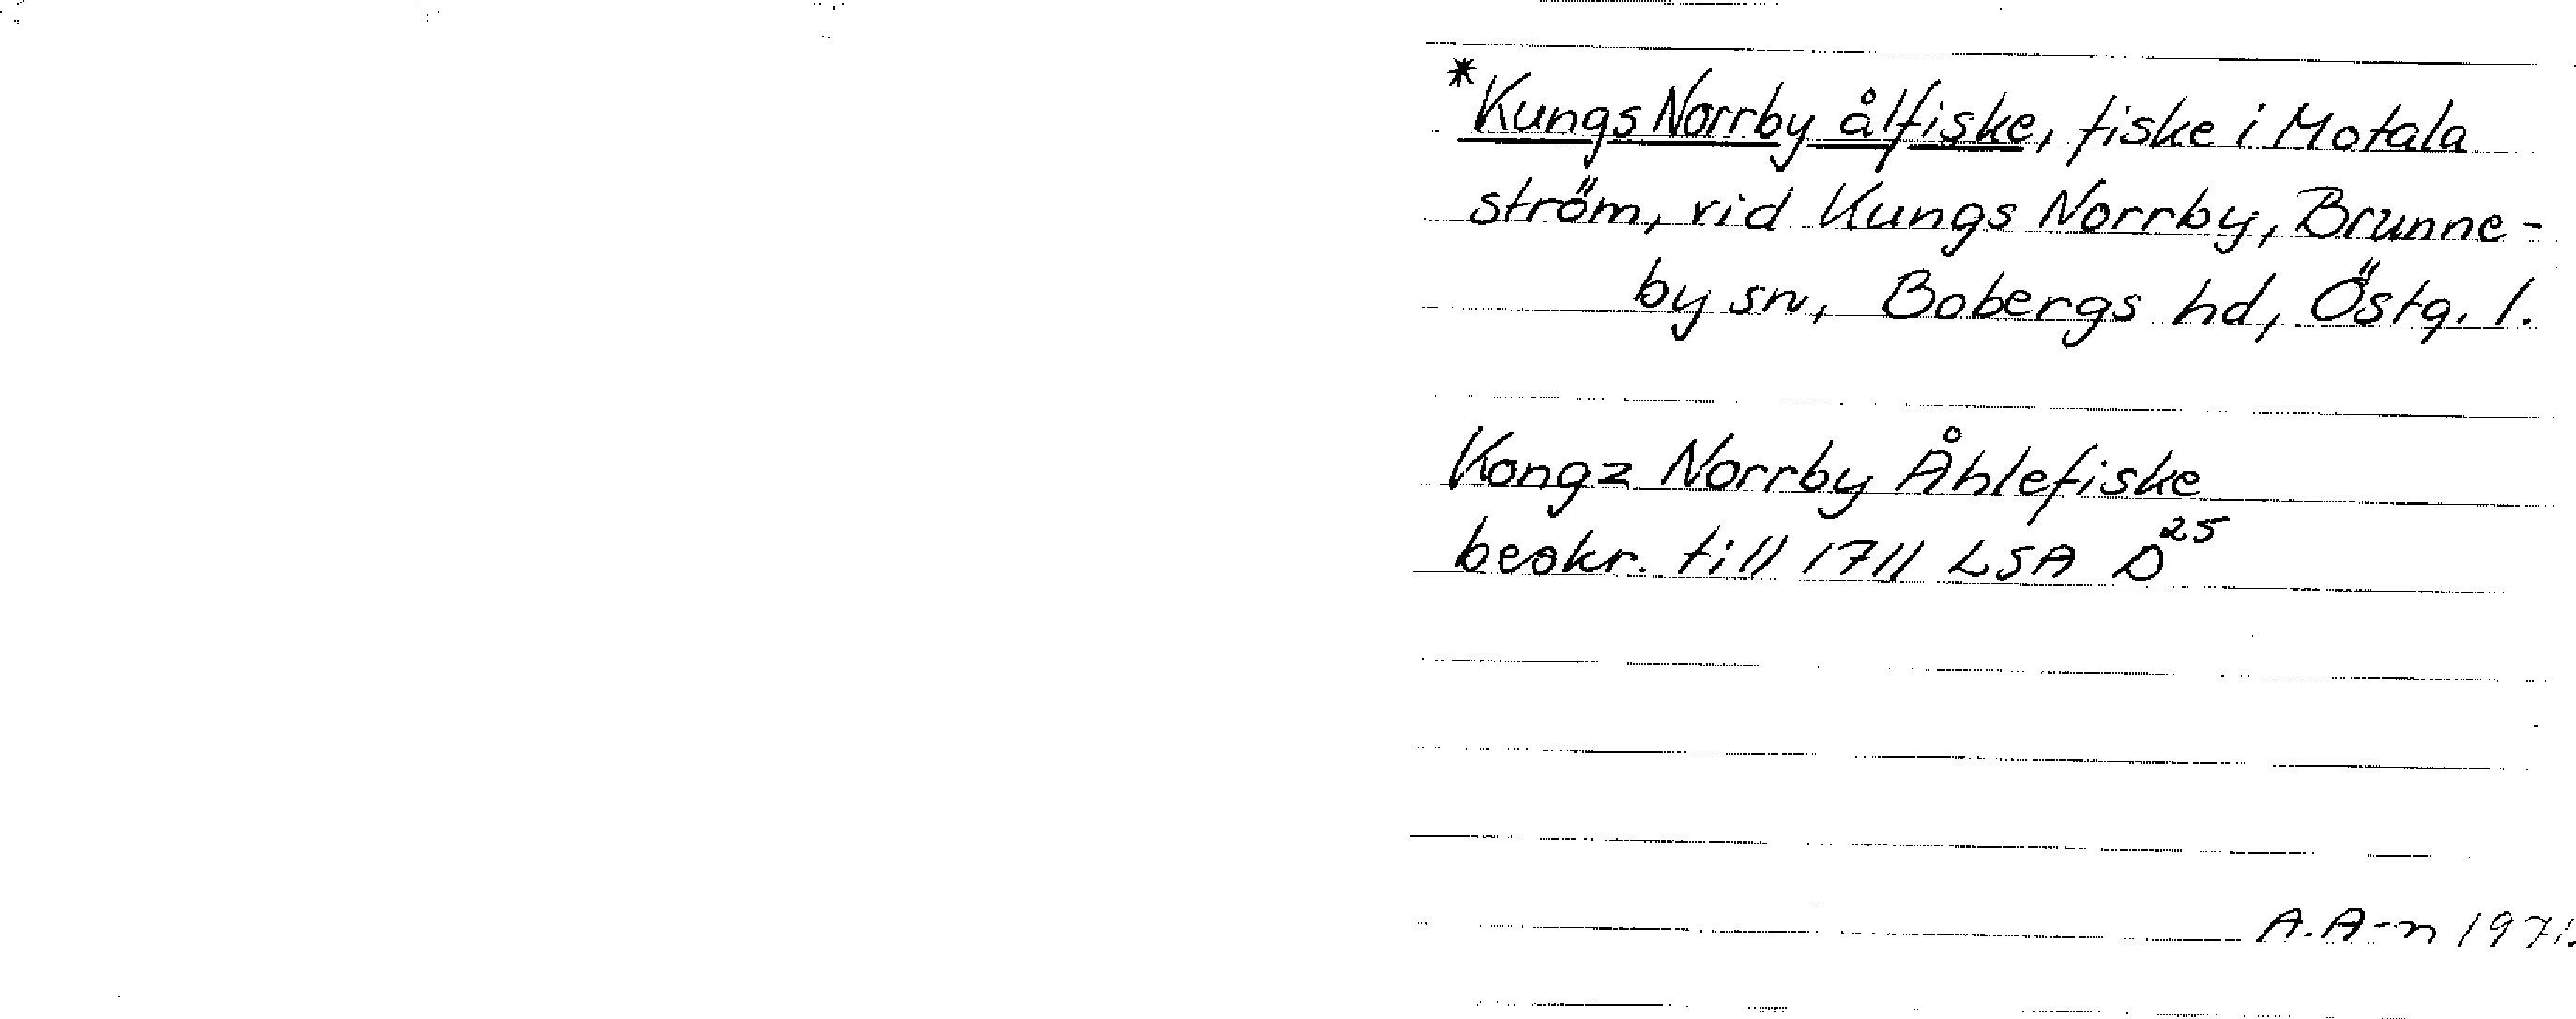 *Kungs Norrby ålfiske, fiske i Motala
ström, vid Kungs Norrby, Brunne-
by sn, Bobergs hd, Östg. l.
Kongz Norrby Åhlefiske
beskr. till 1711 LSA D25
A.A-n